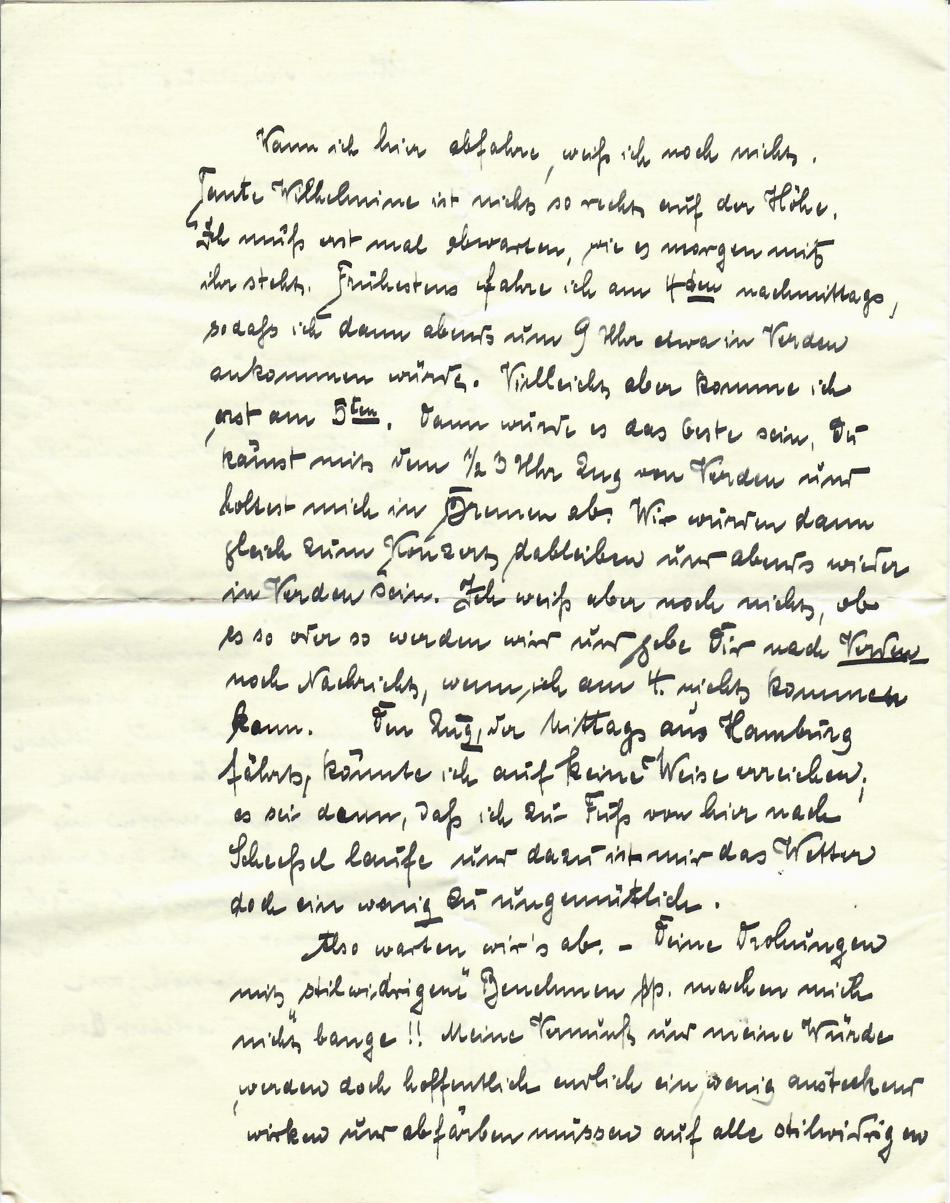 Wann ich hier abfahre, weiß ich noch nicht.
Tante Wilhelmine ist nicht so recht auf der Höhe.
Ich muß erst mal abwarten, wie es morgen mit
ihr steht. Frühestens fahre ich am 4ten nachmittags,
sodaß ich dann abends um 9 Uhr etwa in Verden
ankommen würde. Vielleicht aber komme ich
erst am 5ten. Dann würde es das beste sein, Du
kämst mit dem ½ 3 Uhr Zug von Verden und
holtest mich in Bremen ab. Wir würden dann
gleich zum Konzert dableiben und abends wieder
in Verden sein. Ich weiß aber noch nicht, ob
es so oder so werden wird und gebe Dir nach Verden
noch Nachricht, wenn ich am 4. nicht kommen
kann. Den Zug, der Mittags aus Hamburg
fährt, könnte ich auf keine Weise erreichen;
es sei denn, daß ich zu Fuß von hier nach
Scheeßel laufe und dazu ist mir das Wetter
doch ein wenig zu ungemütlich.
Also warten wir's ab. – Deine Drohungen
mit "stilwidrigem" Benehmen pp. machen mich
nicht bange!! Meine Vernunft und meine Würde
werden doch hoffentlich endlich ein wenig ansteckend
wirken und abfärben müssen auf alle stilwidrigen